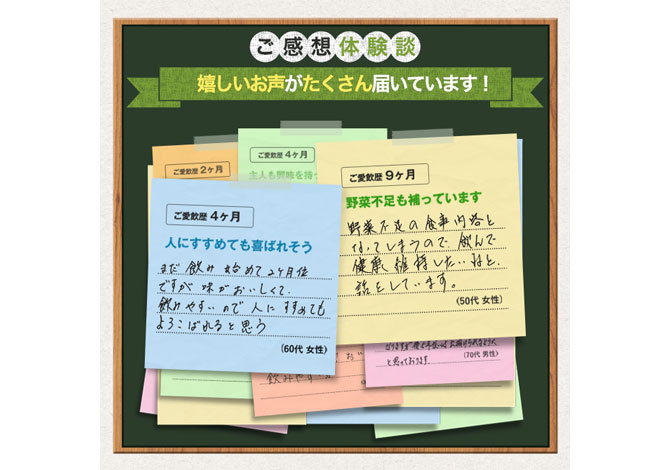 ご感想体験談
嬉しいお声がたくさん届いています!
ご愛飲歴 2ヶ月
ご愛飲歴 4ヶ月
主人も興味を持っ
ご愛飲歴 9ヶ月
野菜不足も補っています
野菜不足の食事内容と
なってしまうので、飲んで
健康維持したいねと、
話をしています。
(50代 女性)
ご愛飲歴 4ヶ月
人にすすめても喜ばれそう
まだ飲み始めて2ヶ月位
ですが味がおいしくて、
飲みやすいので人にすすめても
よろこばれると思う
(60代 女性)
と思っております。
(70代 男性)
飲みやす